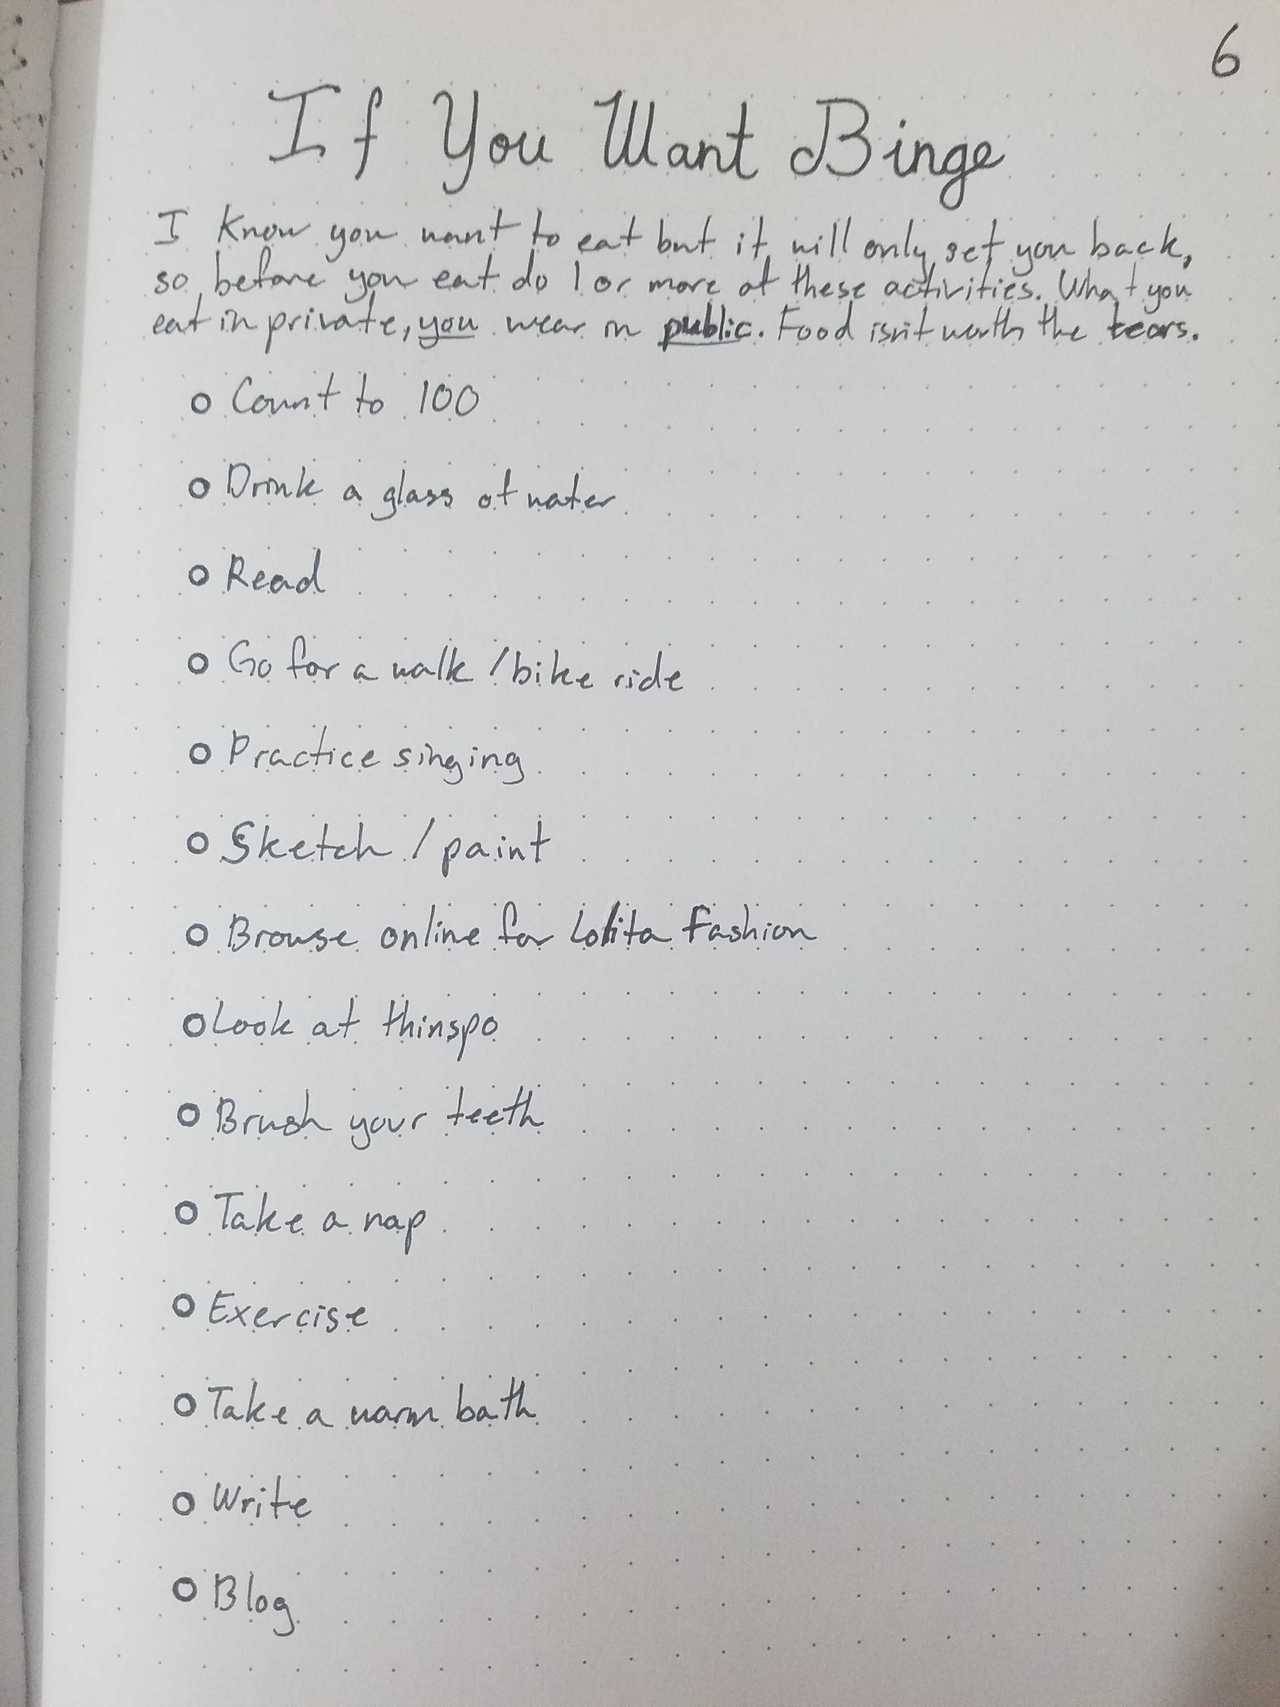 6
If You Want Binge
I know you want to eat but it will only set you back,
so before you eat do 1 or more of these activities. What you
eat in private, you wear in public. Food isn't worth the tears.
Count to 100
Drink a glass of water
Read
Go for a walk / bike ride
Practice singing
Sketch / paint
Browse online for Lolita Fashion
Look at thinspo
Brush your teeth
Take a nap
Exercise
Take a warm bath
Write
Blog